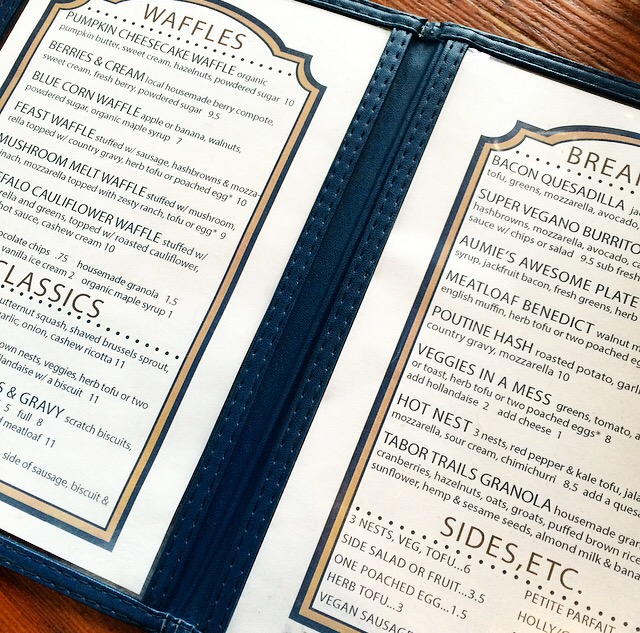 WAFFLES
PUMPKIN CHEESECAKE WAFFLE organic
pumpkin butter, sweet cream, hazelnuts, powdered sugar 10
BERRIES & CREAM local housemade berry compote,
sweet cream, fresh berry, powdered sugar 9.5
BLUE CORN WAFFLE apple or banana, walnuts,
powdered sugar, organic maple syrup 7
FEAST WAFFLE stuffed w/ sausage, hashbrowns & mozza-
rella topped w/ country gravy, herb tofu or poached egg* 10
MUSHROOM MELT WAFFLE stuffed w/ mushroom,
inach, mozzarella topped with zesty ranch, tofu or egg* 9
FALO CAULIFLOWER WAFFLE stuffed w/
rella and greens, topped w/ roasted cauliflower,
hot sauce, cashew cream 10
ocolate chips .75 housemade granola 1.5
vanilla ice cream 2 organic maple syrup 1
CLASSICS
utternut squash, shaved brussels sprout,
arlic, onion, cashew ricotta 11
own nests, veggies, herb tofu or two
llandaise w/ a biscuit 11
S & GRAVY scratch biscuits,
5 full 8
d meatloaf 11
side of sausage, biscuit &
BREA
BACON QUESADILLA
tofu, greens, mozzarella, avocado
SUPER VEGANO BURRITO
hashbrowns, mozzarella, avocado, ca
sauce w/ chips or salad 9.5 sub fres
AUMIE'S AWESOME PLATE
syrup, jackfruit bacon, fresh greens, herb
MEATLOAF BENEDICT walnut m
english muffin, herb tofu or two poached eg
POUTINE HASH roasted potato, garl
country gravy, mozzarella 10
VEGGIES IN A MESS greens, tomato, a
or toast, herb tofu or two poached eggs* 8
add hollandaise 2 add cheese 1
HOT NEST 3 nests, red pepper & kale tofu, jala
mozzarella, sour cream, chimichurri 8.5 add a quesa
TABOR TRAILS GRANOLA housemade gran
cranberries, hazelnuts, oats, groats, puffed brown rice
sunflower, hemp & sesame seeds, almond milk & bana
SIDES, ETC.
3 NESTS, VEG, TOFU...6
SIDE SALAD OR FRUIT...3.5
ONE POACHED EGG...1.5
HERB TOFU...3
VEGAN SAUSAGE
PETITE PARFAIT
HOLLY